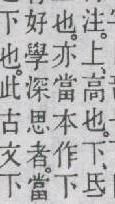 注。上、高也。下、氐
也。亦當本作下
好學深思者。當
下也。此古文下